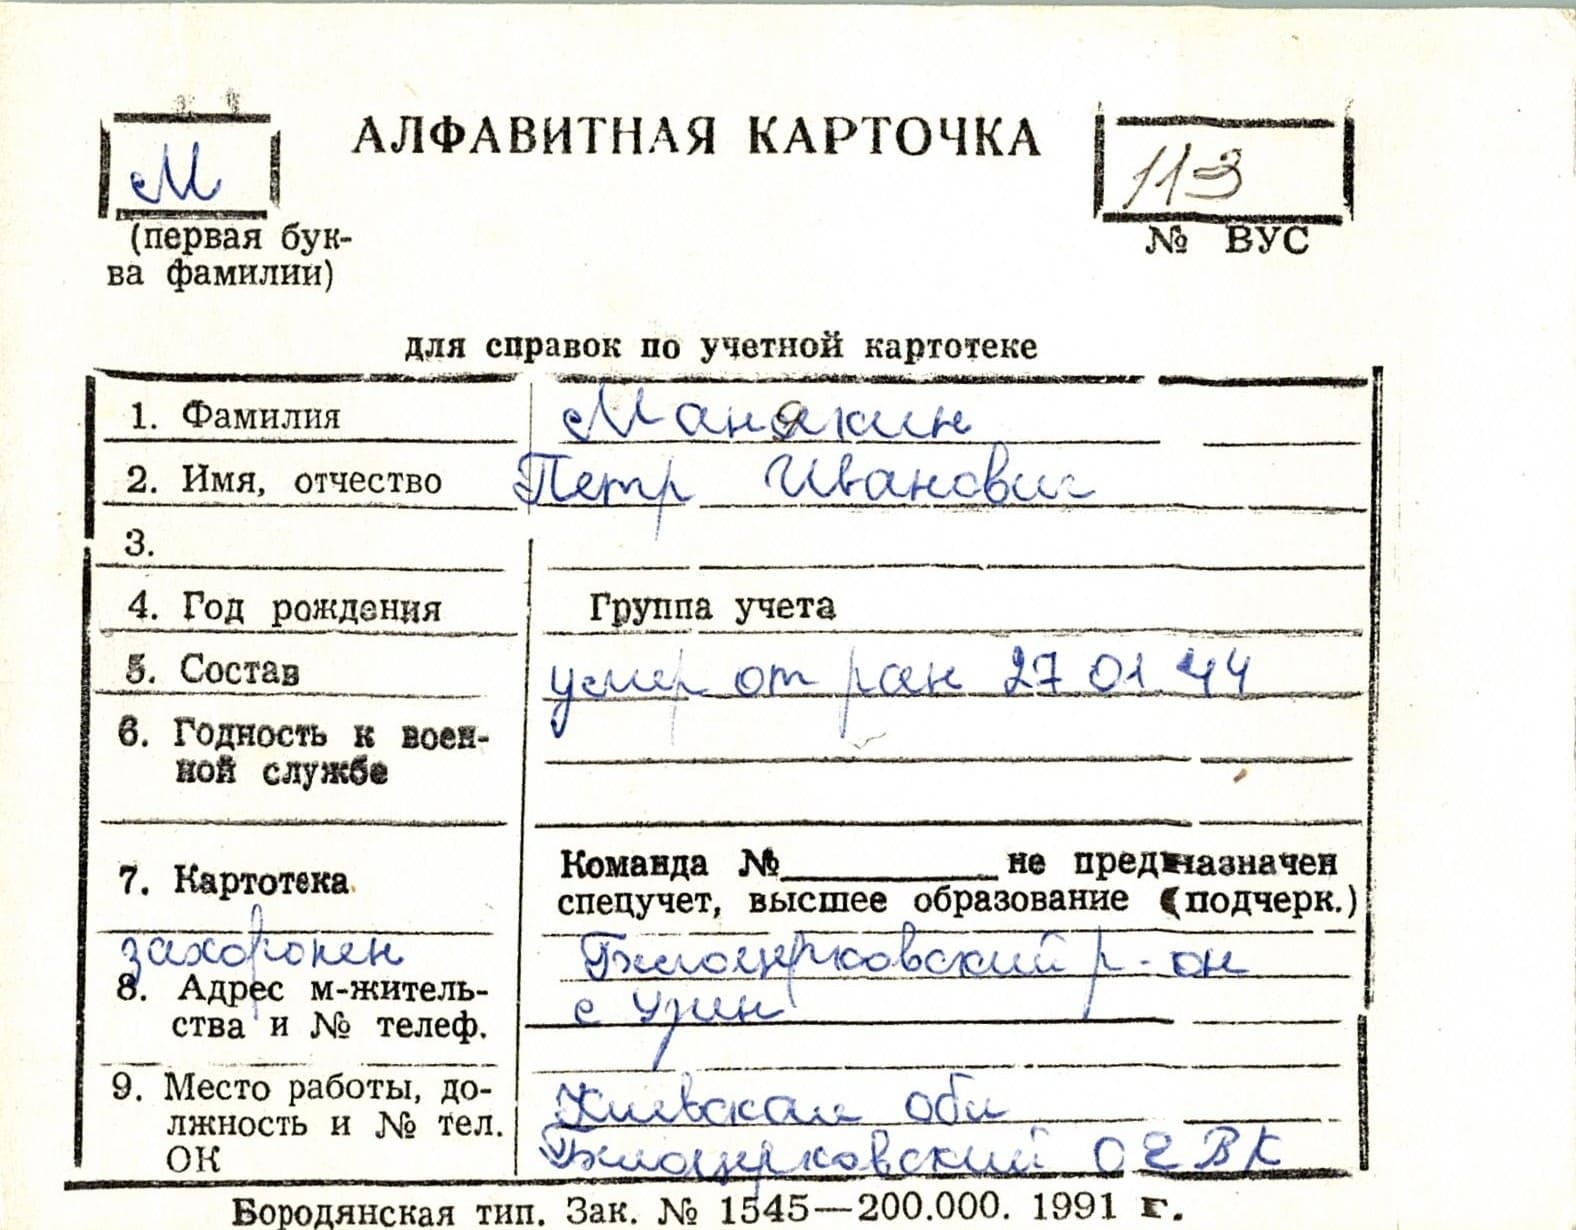 АЛФАВИТНАЯ КАРТОЧКА
М
113
(первая бук-
ва фамилии)
№ ВУС
для справок по учетной картотеке
1. Фамилия Манякин
2. Имя, отчество Петр Иванович
3.
4. Год рождения Группа учета
5. Состав умер от ран 27 01 44
6. Годность к воен-
ной службе
Команда № не предназначен
7. Картотека
спецучет, высшее образование (подчерк.)
захоронен Белоцерковский р-он
8. Адрес м-житель-
с Узин
ства и № телеф.
9. Место работы, до- Киевская обл
лжность и № тел.
ОК Белоцерковский ОГВК
Бородянская тип. Зак. № 1545—200.000. 1991 г.